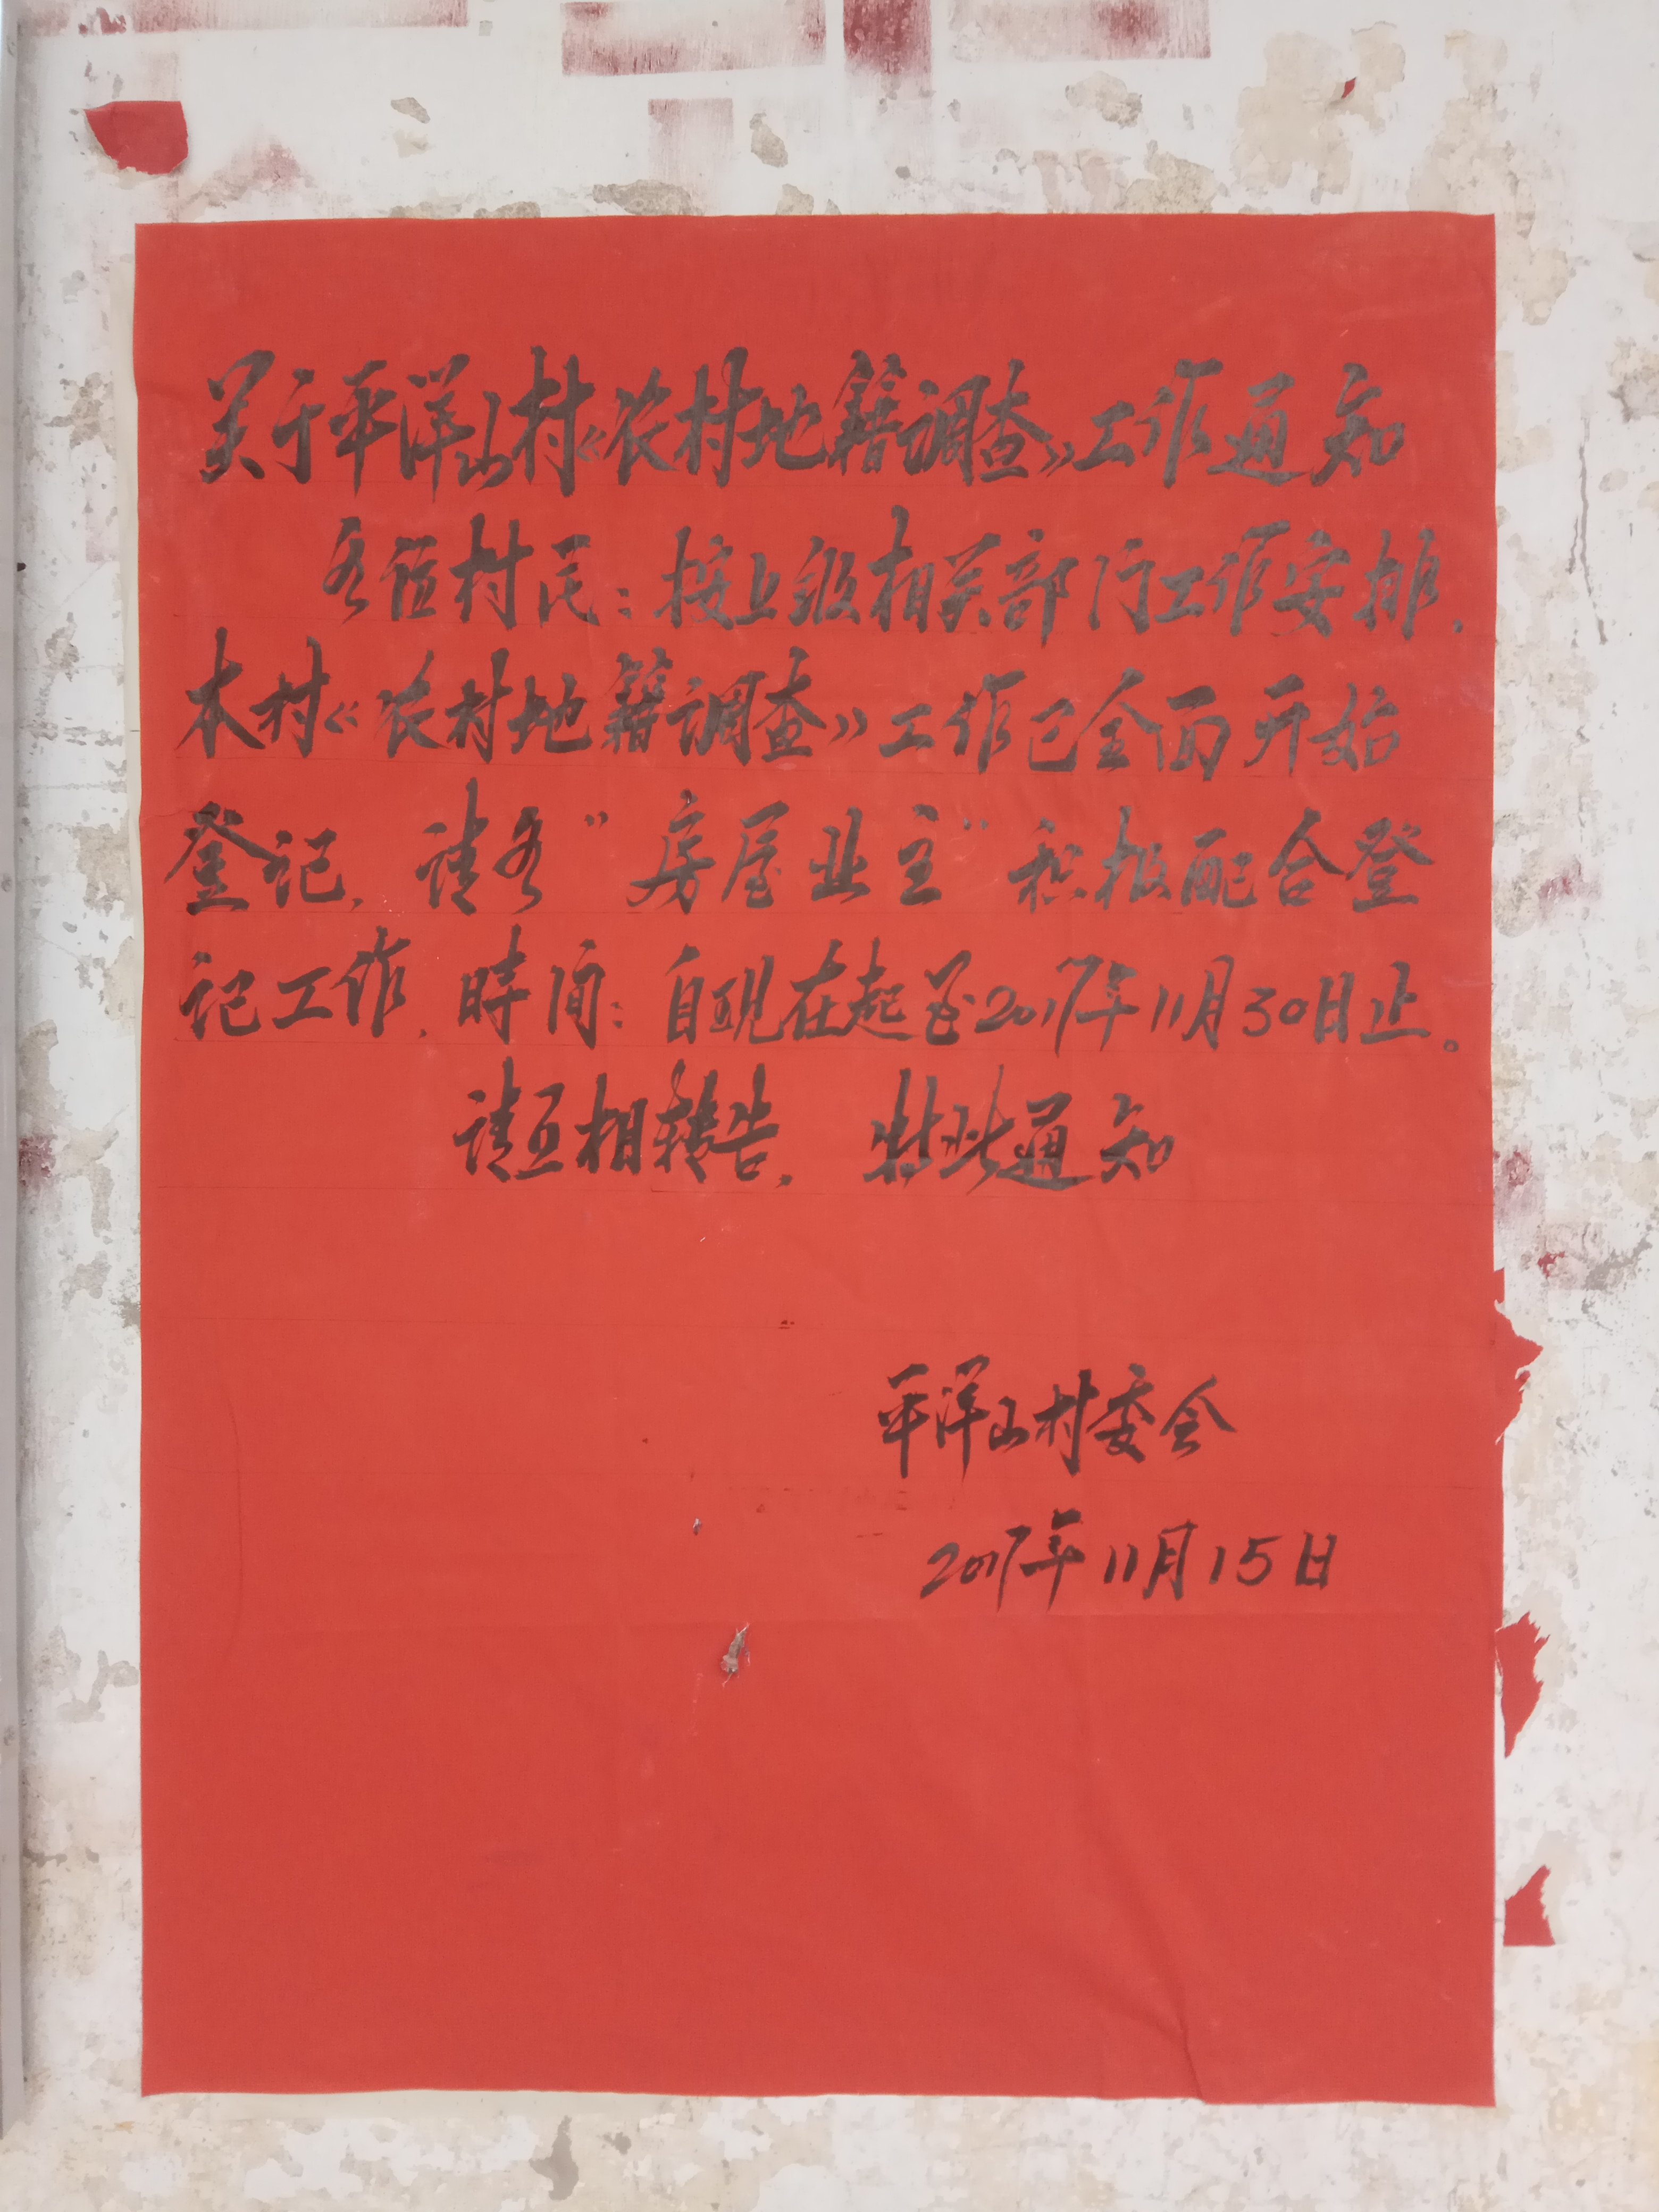 关于平洋山村《农村地籍调查》工作通知
各位村民：按上级相关部门工作安排，
本村《农村地籍调查》工作已全面开始
登记，请各“房屋业主”积极配合登
记工作，時间：自现在起至2017年11月30日止。
请互相转告，特此通知
平洋山村委会
2017年11月15日